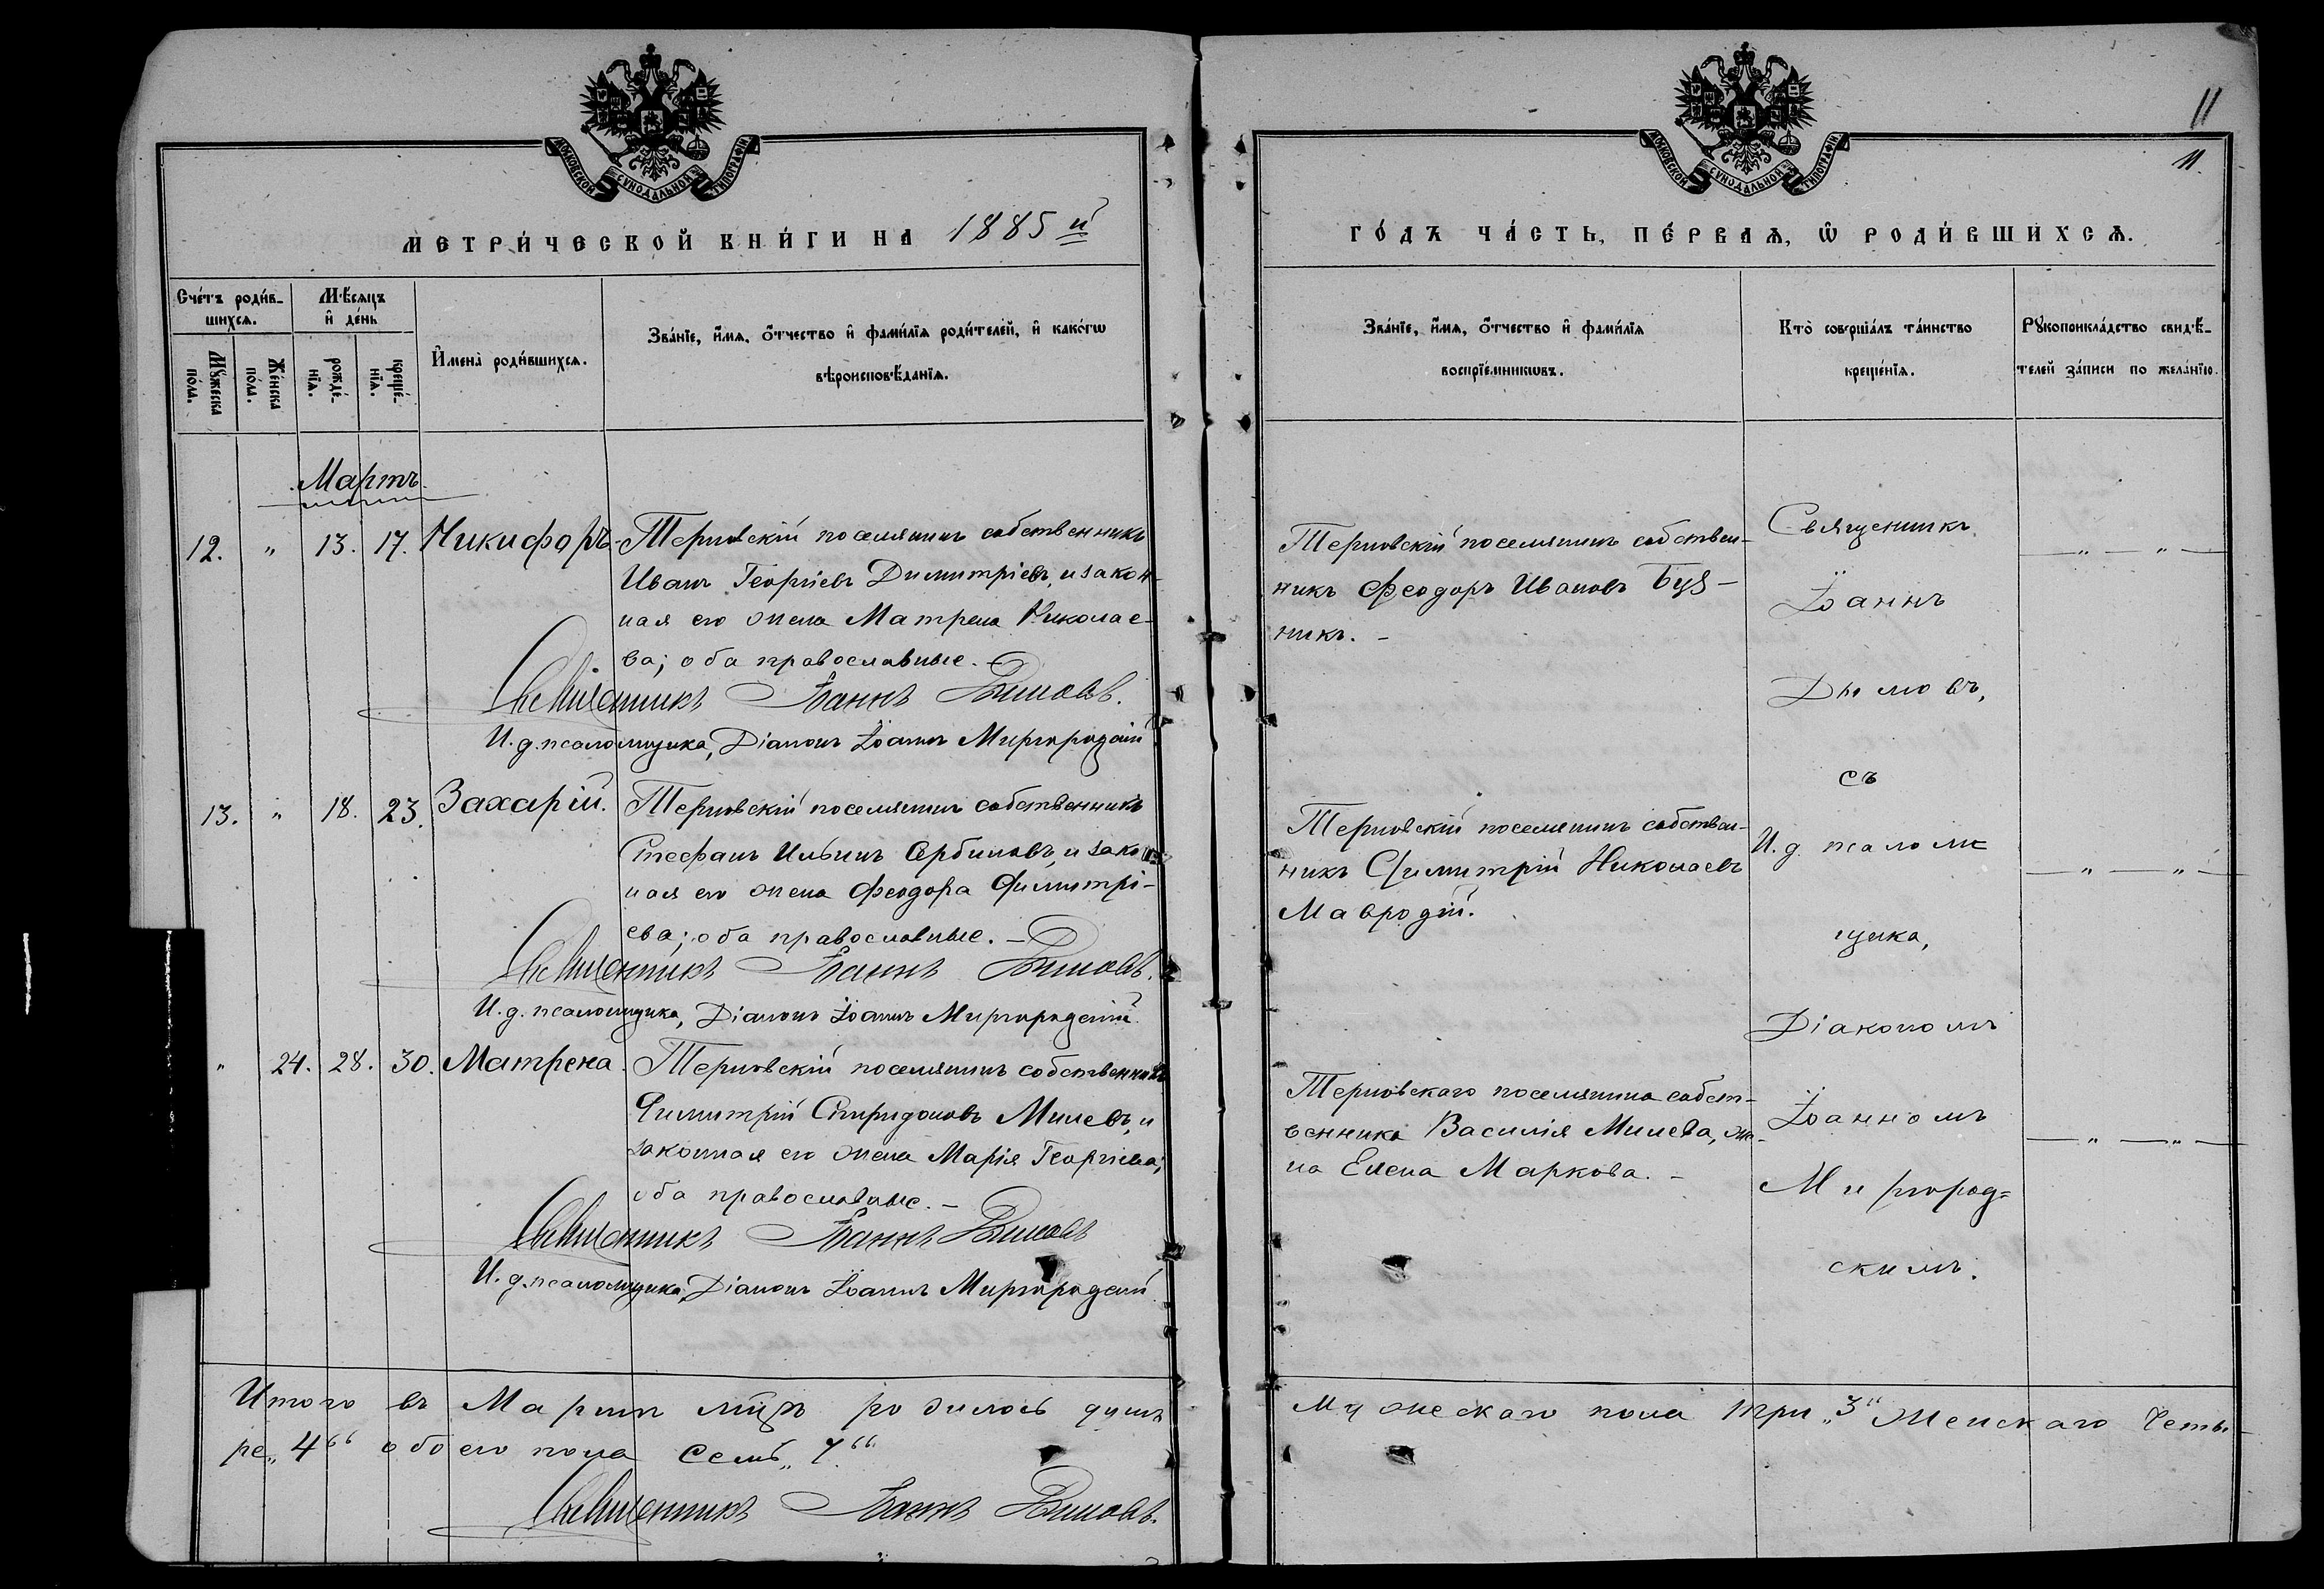 МОСКОВСКОЙ СѴНОДАЛЬНОЙ ТИПОГРАФІИ
МЕТРИ́ЧЕСКОЙ КНИ́ГИ НА 1885й
Сче́тъ роди́в-
шихсѧ.
Мѣ́сѧцъ
и҆ де́нь
Мꙋ́жеска
по́ла.
Же́нска
по́ла.
рожде́-
нїѧ.
креще́-
нїѧ.
И҆мена̀ роди́вшихсѧ.
Зва́нїе, и҆́мѧ, о҆́тчество и҆ фами́лїѧ роди́телей, и҆ како́гѡ
вѣроисповѣ́данїѧ.
Мартъ.
12. " 13. 17. Никифоръ.
Терновскій поселянинъ собственникъ
Иванъ Георгіевъ Димитріевъ, и закон-
ная его жена Матрена Николае-
ва; оба православные. –
Священникъ Іоаннъ Дымовъ.
И. д. псаломщика, Діаконъ Іоаннъ Миргородскій
13. " 18. 23. Захарій.
Терновскій поселянинъ собственникъ
Стефанъ Ильинъ Сербиновъ, и закон
ная его жена Феодора Димитрі-
ева; оба православные. –
Священникъ Іоаннъ Дымовъ.
И. д. псаломщика, Діаконъ Іоаннъ Миргородскій.
" 24. 28. 30. Матрена.
Терновскій поселянинъ собственникъ
Димитрій Спиридоновъ Милевъ, и
законная его жена Марія Георгіева;
оба православные. –
Священникъ Іоаннъ Дымовъ
И. д. псаломщика, Діаконъ Іоаннъ Миргородскій
Итого въ Мартѣ м͠цѣ родилось душъ
ре „4“ обоего пола Семь „7“
Священникъ Іоаннъ Дымовъ.
11
11.
МОСКОВСКОЙ СѴНОДАЛЬНОЙ ТИПОГРАФІИ
ГО́ДЪ ЧА́СТЬ, ПЕ́РВАѦ, Ѡ҆ РОДИ́ВШИХСѦ.
Зва́нїе, и҆́мѧ, о҆́тчество и҆ фами́лїѧ
воспрїе́мникѡвъ.
Кто̀ соверша́лъ та́инство
креще́нїѧ.
Рꙋкоприкла́дство свидѣ́-
телей за́писи по жела́нїю.
Терновскій поселянинъ собствен-
никъ Феодоръ Ивановъ Буз-
никъ. –
Терновскій поселянинъ собствен-
никъ Димитрій Николаевъ
Мавродій.
Терновскаго поселянина собст-
венника Василія Милева, же-
на Елена Маркова. –
Священникъ
Іоаннъ
Дымовъ,
съ
И. д. псаломщ
щика,
Діакономъ
Іоанномъ
Миргород=
скимъ.
— " — " —
— " — " —
— " — " —
мужескаго пола три „3“ женскаго четы-